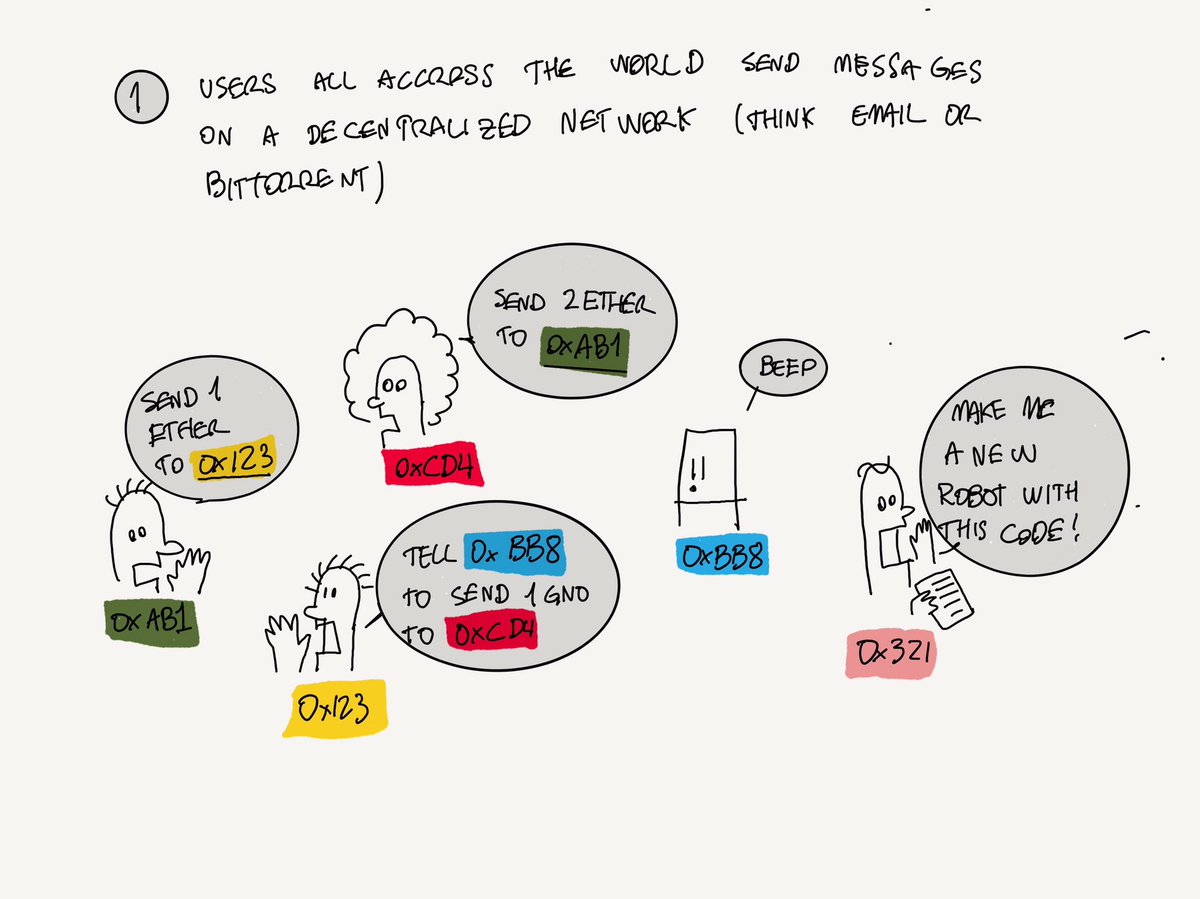 1
USERS ALL ACCORSS THE WORLD SEND MESSAGES
ON A DECENTRALIZED NETWORK (THINK EMAIL OR
BITTORRENT)
SEND 2 ETHER
TO 0xAB1
BEEP
SEND 1
ETHER
TO 0x123
0xCD4
MAKE ME
A NEW
ROBOT WITH
THIS CODE!
!!
0xBB8
TELL 0xBB8
TO SEND 1 GNO
TO 0xCD4
0xAB1
0x123
0x321